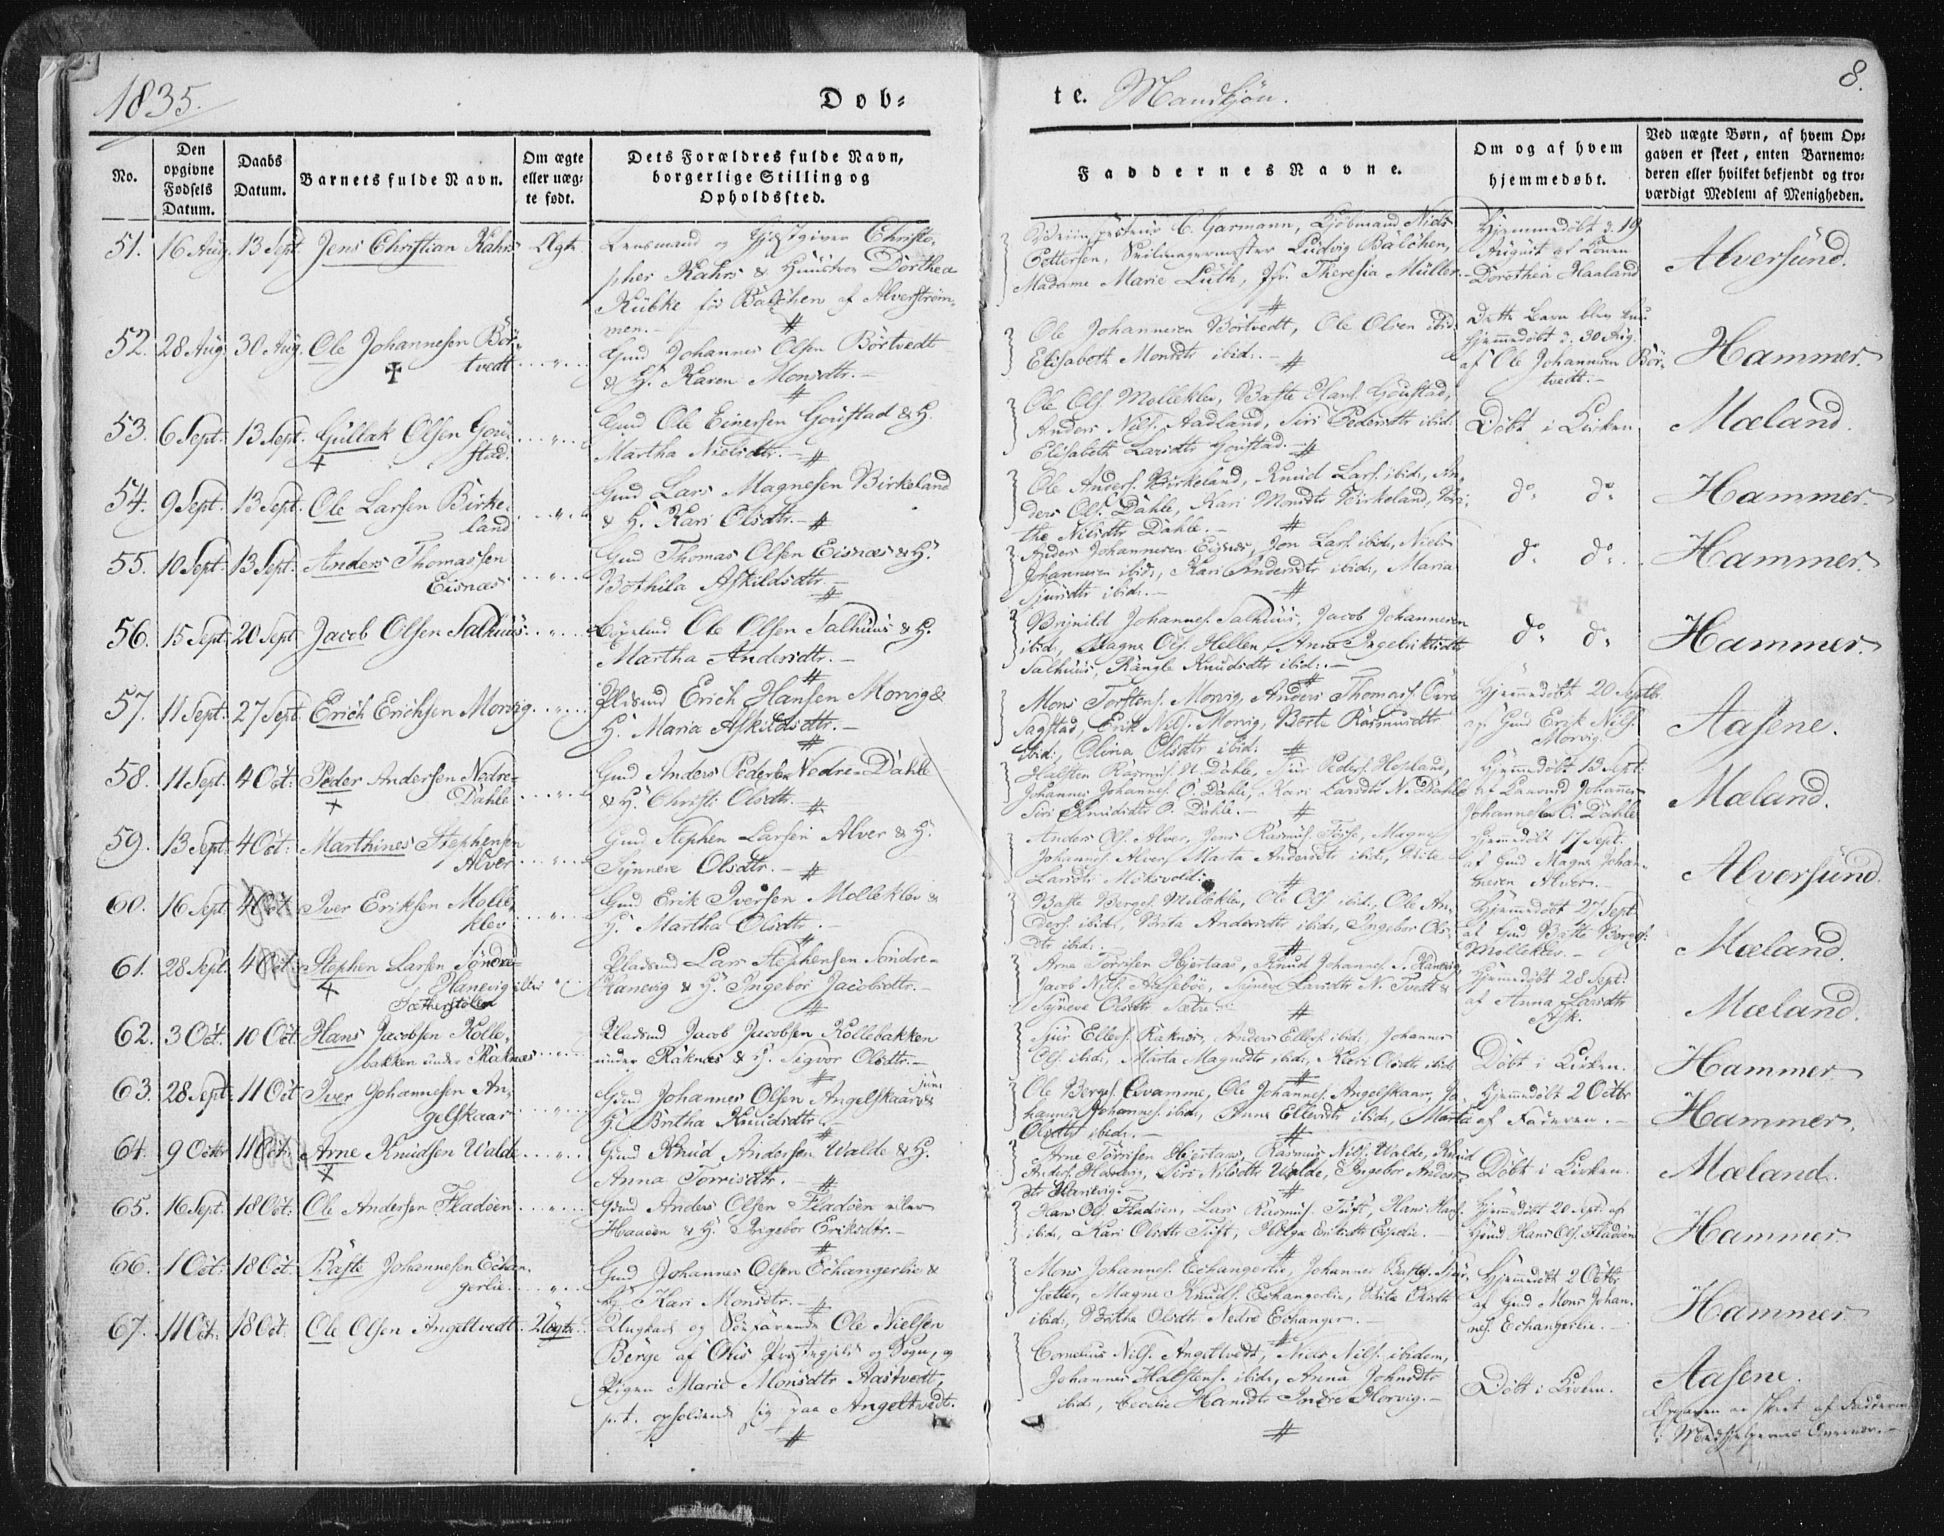 1835.
Døb=
te. Mandkjön.
8.
No.
Den opgivne Fødsels Datum.
Daabs Datum.
Barnets fulde Navn.
Om ægte eller uæg= te født.
Dets Forældres fulde Navn, borgerlige Stilling og Opholdssted.
Faddernes Navne.
Om og af hvem hjemmedøbt.
Ved uægte Børn, af hvem Op= gaven er skeet, enten Barnemo= deren eller hvilket bekjendt og tro= værdigt Medlem af Menigheden.
51. 16 Aug. 13 Sept. Jens Christian Kahrs Ægte
Lensmand og Gjæstgiver Christo,
pher Kahrs & Huustroe Dorthea
Lübke fös Balchen af Alverström,
men.
C. Garmann, Kjöbmand Niels
Pettersen, Seilmagermester Ludvig Balchen,
Madame Marie Lüth, Jfr. Theresia Müller.
Hjemmedöbt d. 19
August af Konen
Dorothea Haaland
Alversund.
52. 28 Aug. 30 Aug. Ole Johannesen Bör=
tvedt
Gmd Johannes Olsen Börtvedt
& H. Karen Monsdtr.
Ole Johannesen Börtvedt, Ole Olsen ibid.
Elisabeth Monsdtr ibid.
hjemmedöbt d. 30 Aug.
af Ole Johannesen Bör,
tvedt.
Hammer.
53. 6 Sept. 13 Sept. Gullak Olsen Gou=
stad.
Gmd Ole Einersen Goustad & H.
Martha Nielsdtr.
Ole Ols. Molleklev, Baste Hans. Goustad,
Anders Nils. Aadland, Siri Pedersdtr ibid
Elisabeth Larsdtr Goustad.
Döbt i Kirken
Mæland.
54. 9 Sept. 13 Sept. Ole Larsen Birke,
land
Gmd Lars Magnesen Birkeland
& H. Kari Olsdtr.
Ole Anders. Birkeland, Knud Lars. ibid., An,
ders Ols. Dahle, Kari Monsdtr Birkeland,
the Nilsdtr Dahle.
do do
Hammer.
55. 10 Sept. 13 Sept. Anders Thomassen
Eisnæs
Gmd Thomas Olsen Eisnæs & H.
Bothila Askildsdtr.
Anders Johannesen Eisnæs, Jon Lars. ibid., Niels
Johannesen ibid., Kari Andersdtr ibid., Maria
Sjursdtr ibid.
do do
Hammer.
56. 15 Sept. 20 Sept. Jacob Olsen Salhuus
Ole Olsen Salhuus & H.
Martha Andersdtr.
Brynild Johannes. Salhuus, Jacob Johannesen
ibid., Magne Ols. Hellen, Anna Ingebriktsdtr
Salhuus, Rangle Knudsdtr ibid.
do do
Hammer.
57. 11 Sept. 27 Sept. Erich Erichsen Morvig
Pladsmd Erich Hansen Morvig &
H. Maria Askildsdtr.
Mons Torstens. Morvig, Anders Thomas. Övre
Sagstad, Erik Nils. Morvig, Berte Rasmusdtr
ibid., Olina Olsdtr ibid.
Hjemmedöbt 20 Septb.
af Gmd Erik Nils.
Morvig.
Aasene.
58. 11 Sept. 4 Oct. Peder Andersen Nedre=
Dahle
Gmd Anders Pedersen Nedre=Dahle
& H. Christi Olsdtr.
Halsten Rasmus. N. Dahle, Sjur Peders. Hopland,
Johannes Johannes. Ö. Dahle, Kari Larsdtr N. Dahle
Siri Knudsdtr Ö. Dahle.
Hjemmedöbt 13 Sept.
af Johannes
Johannesen Ö. Dahle
Mæland.
59. 13 Sept. 4 Oct. Marthines Stephensen
Alver
Gmd Stephen Larsen Alver & H.
Synneve Olsdtr.
Anders Ols. Alver, Jens Rasmus. Magne
Johannes. Alver, Marta Andersdtr ibid.,
Larsdtr
Hjemmedöbt 17 Sept.
af Gmd Magne Johan=
nesen Alver.
Alversund.
60. 16 Sept. 4 Oct. Iver Eriksen Molle,
klev
Gmd Erik Iversen Molleklev &
H. Martha Olsdtr.
Baste Berges. Molleklev, Ole Ols. ibid., Ole An,
ders. ibid., Brita Andersdtr ibid., Ingebor Ols,
dtr ibid.
Hjemmedöbt 27 Sept.
af Gmd Baste Berges.
Mollekler.
Mæland.
61. 28 Sept. 4 Oct. Stephen Larsen Söndre=
Hanevig eller
Sætherstölen
Pladsmd Lars Stephensen Söndre=
Hanevig & H. Ingebor Jacobsdtr.
Arne Torrisen Hjertaas, Knud Johannes. S. Hanevig,
Jacob Nils. Huseboe, Synneve Larsdtr N. Tvedt &
Synneve Olsdtr Sætre.
Hjemmedöbt 28 Sept.
af Anna Larsdtr
Ask.
Mæland.
62. 3 Oct. 10 Oct. Hans Jacobsen Kolle,
bakken under Raknæs
Pladsmd Jacob Jacobsen Kollebakken
under Raknæs & H. Sigvor Olsdtr.
Sjur Ellers. Raknæs, Anders Ellers. ibid., Johannes
Ols. ibid., Marta Magnesdtr ibid., Kari Olsdtr ibid.
Döbt i Kirken.
Hammer
63. 28 Sept. 11 Oct. Iver Johannesen An,
gelskaar
Gmd Johannes Olsen Angelskaar &
H. Britha Knudsdtr.
Ole Berges. Qvamme, Ole Johannes. Angelskaar, Jo,
hannes Johannes. ibid., Anna Ellersdtr ibid., Marta
Olsdtr ibid.
Hjemmedöbt 2 Octbr
af Faderen.
Hammer.
64. 9 Octbr 11 Oct. Arne Knudsen Walde
Gmd Knud Andersen Walde & H.
Anna Torrisdtr.
Arne Torrisen Hjertaas, Rasmus Nils. Walde, Knud
Anders. Hanevig, Siri Nilsdtr Walde, Ingebor Anders,
dtr Hanevig.
Döbt i Kirken.
Mæland.
65. 16 Sept. 18 Oct. Ole Andersen Fladöen
Gmd Anders Olsen Fladöen eller
& H. Ingebor Eriksdtr.
Hans Ols. Fladöen, Lars Rasmus. Tuft, Hans Hans.
ibid., Kari Olsdtr Tuft, Helga
Hjemmedöbt 20 Sept. af
Gmd Hans Ols. Fladöen
Hammer
66. 1 Oct. 18 Oct. Baste Johannesen Echan,
gerlie
Gmd Johannes Olsen Echangerlie &
H. Kari Monsdtr.
Mons Johannes. Echangerlie, Johannes Bastes.
Magne Knuds. Echangerlie, Brita Olsdtr
ibid., Britha Olsdtr Nedre Echanger.
Hjemmedöbt 2 Octbr
af Gmd Mons Johan,
nes. Echangerlie.
Hammer
67. 11 Oct. 18 Oct. Ole Olsen Angeltvedt Uægte
Ungkarl og Söefarende Ole Nielsen
Berge af Oos Præstegjeld og Sogn, og
Pigen Marie Monsdtr Aastvedt,
p.t. opholdende sig paa Angeltvedt.
Cornelius Nils. Angeltvedt, Niels Nils. ibidem,
Johannes Halstens. ibid., Anna Johnsdtr
ibid., Cecilie Hansdtr Indre Morvig.
Döbt i Kirken.
Aasene.
Opgaven er skeet af Fadderne
i Medhjelpernes Overvær.